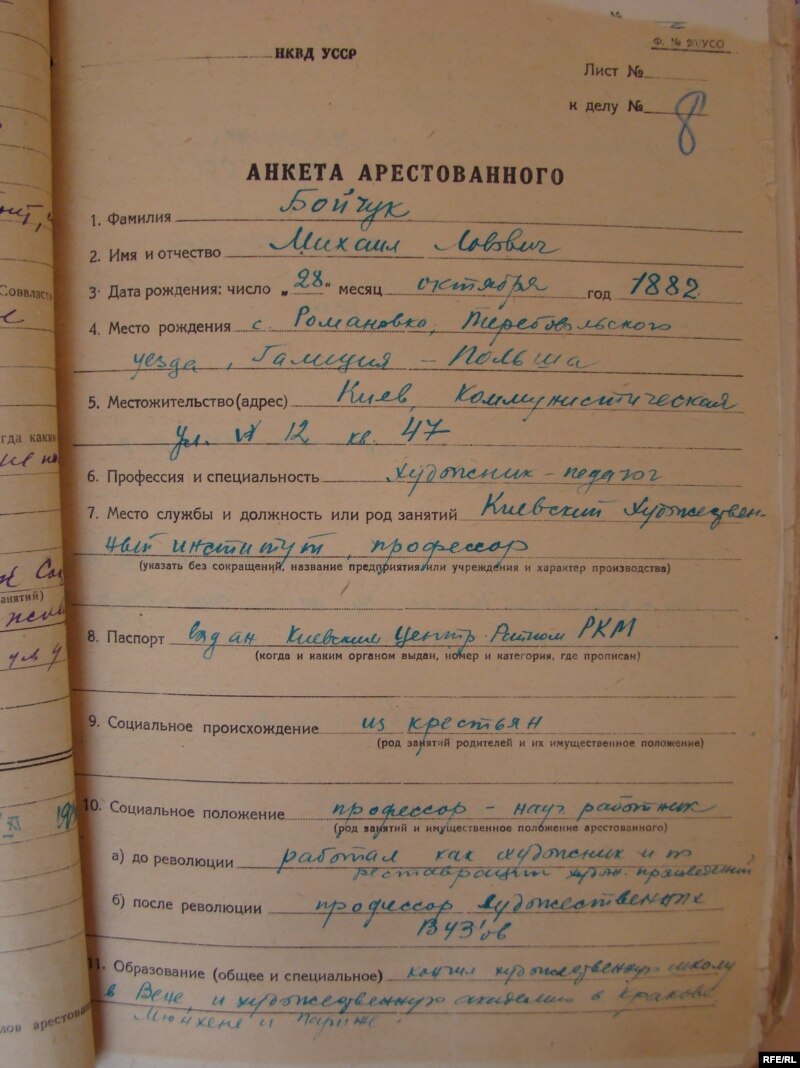 Ф. № 20/УСО
НКВД УССР
Лист №
к делу № 8
АНКЕТА АРЕСТОВАННОГО
1. Фамилия Бойчук
2. Имя и отчество Михаил Львович
3. Дата рождения: число „28“ месяц октября год 1882
4. Место рождения с. Романовка, Теребовльского
уезда, Галиция – Польша
5. Местожительство (адрес) Киев, Коммунистическая
ул. № 12 кв. 47
6. Профессия и специальность художник - педагог
7. Место службы и должность или род занятий Киевский художествен-
ный институт, профессор
(указать без сокращений, название предприятия или учреждения и характер производства)
8. Паспорт выдан Киевским Центр. РКМ
(когда и каким органом выдан, номер и категория, где прописан)
9. Социальное происхождение из крестьян
(род занятий родителей и их имущественное положение)
10. Социальное положение профессор – науч. работник
(род занятий и имущественное положение арестованного)
а) до революции работал как художник и по
реставрации худож. произведений
б) после революции профессор художественных
ВУЗ'ов
11. Образование (общее и специальное) кончил художественную школу
в Вене, и художественную академию в Кракове
Мюнхене и Париже.
Соввласт
гда каки
анятий)
лов арестован
RFE/RL